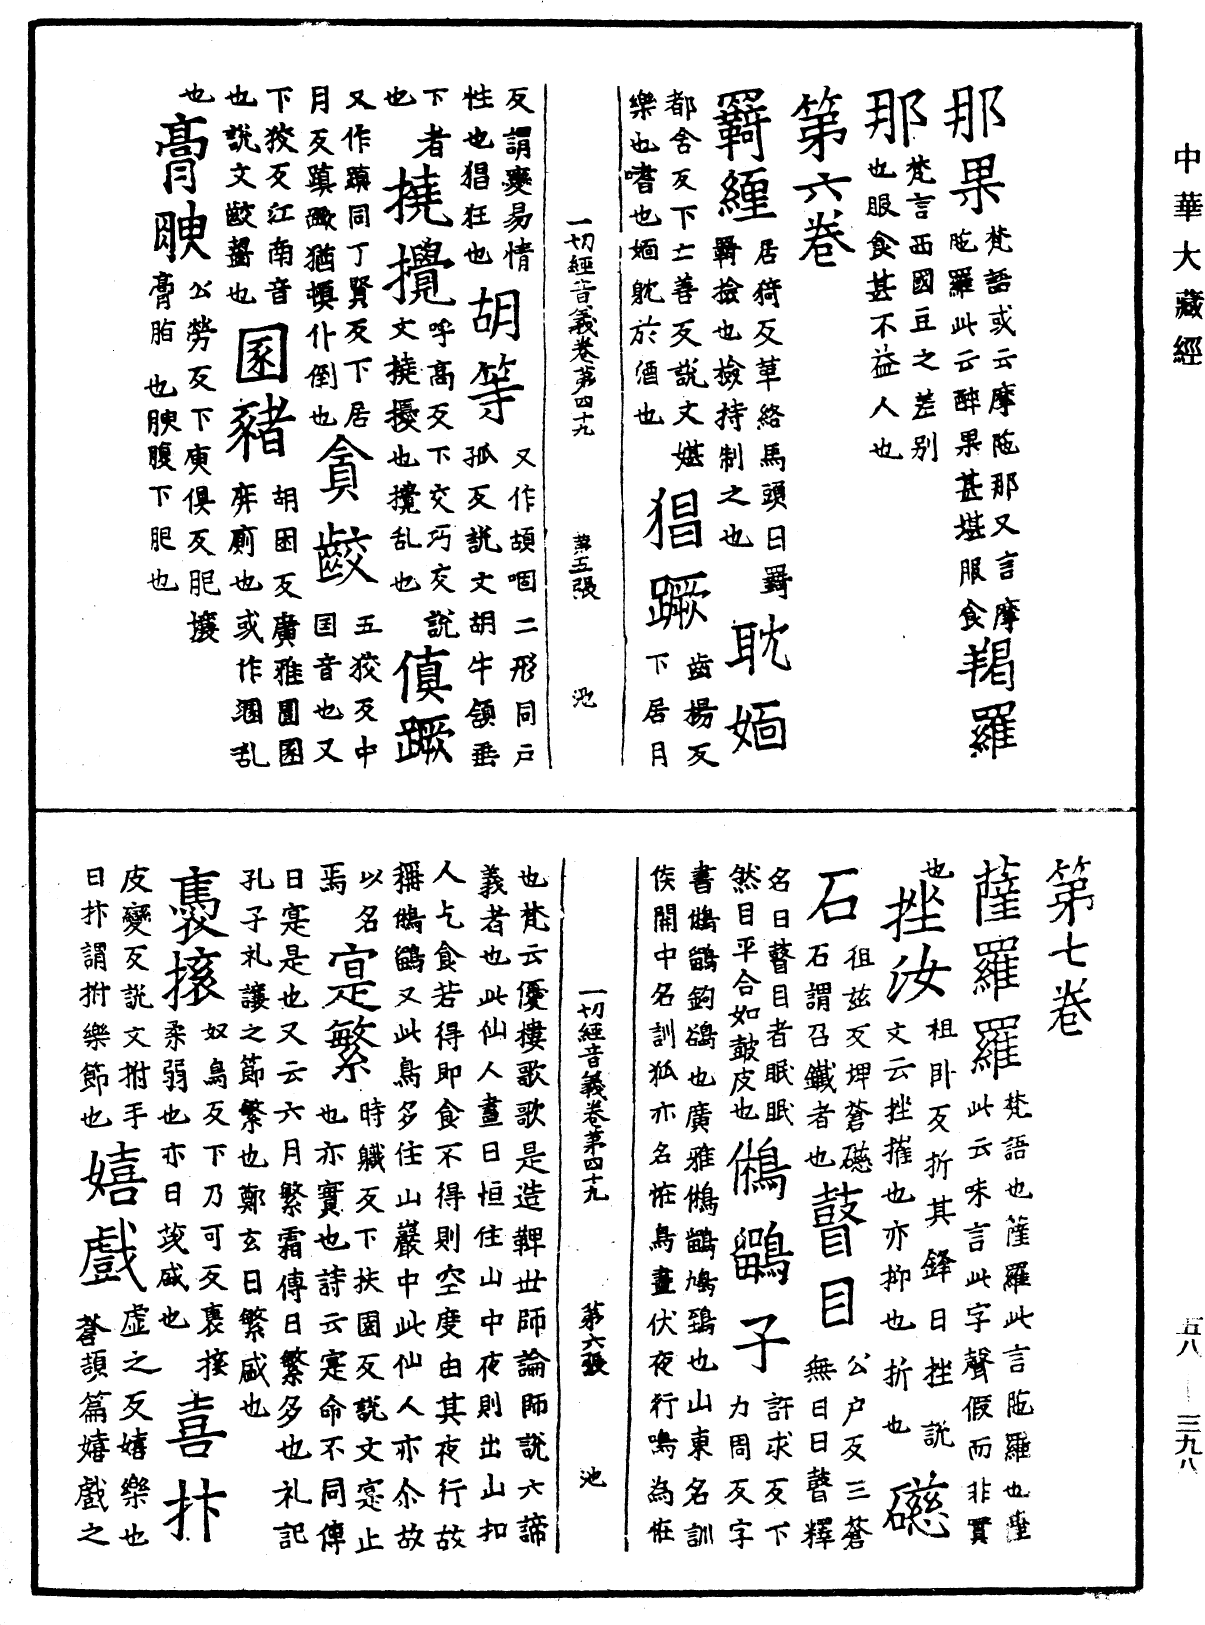 中華大藏經
那果梵語或云摩陁那又言摩陁羅此云醉果甚堪服食羯羅
那梵言西國豆之差別也服食甚不益人也
第六卷
羇縲居猗反革絡馬頭曰羇羇撿也撿持制之也耽湎
都含反下亡善反說文媅樂也嗜也湎躭於酒也猖蹶齒揚反下居月
一切經音義卷第四十九 第五張 池
反謂變易情性也猖狂也胡等又作頡咽二形同戶孤反說文胡牛頷垂
下者也撓攪呼高反下交巧反說文撓擾也攪乱也傎蹶
又作蹎同丁賢反下居月反蹎蹶猶頓仆倒也貪齩五狡反中國音也又
下狡反江南音也說文齩齧也圂豬胡困反廣雅圊圂屏廁也或作溷乱
也膏腴公勞反下庾俱反肥壤膏脂也腴腹下肥也
第七卷
薩羅羅梵語也薩羅此言陁羅也羅此云味言此字聲假而非實
也挫汝祖臥反折其鋒曰挫說文云挫摧也亦抑也折也礠
石徂茲反埤蒼礠石謂召鐵者也瞽目公户反三蒼無目曰瞽釋
名曰瞽目者眠眠然目平合如皷皮也鵂鶹子許求反下力周反字
書鵂鶹鉤鵅也廣雅鵂鶹鳩鵄也山東名訓侯關中名訓狐亦名恠鳥晝伏夜行鳴為恠
一切經音義卷第四十九 第六張 池
也梵云優樓歌歌是造鞞世師論師說六諦義者也此仙人晝日恒住山中夜則出山扣
人乞食若得即食不得則空度由其夜行故稱鵂鶹又此鳥多住山巖中此仙人亦尒故
以名焉寔繁時軄反下扶園反說文寔止也亦實也詩云寔命不同傳
曰寔是也又云六月繁霜傳曰繁多也礼記孔子礼讓之節繁也鄭玄曰繁咸也
褭挼奴鳥反下乃可反褭挼柔弱也亦曰茂咸也喜抃
皮變反說文拊手曰抃謂拊樂節也嬉戲虛之反嬉樂也蒼頡篇嬉戲之
五八—三九八